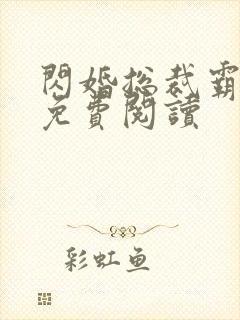 閃婚総裁霸
免費閱讀
彩虹鱼